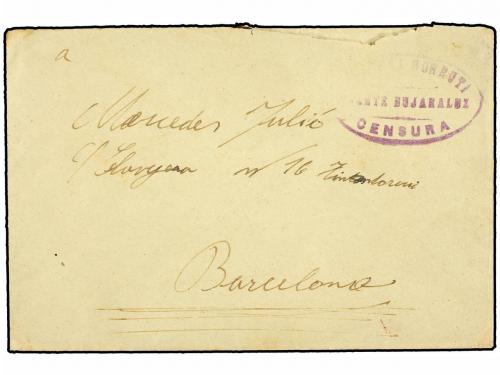 a
DURRUTI
FRENTE BUJARALUZ
CENSURA
Mercedes Julió
nº 16 Tintoreria
Barcelona